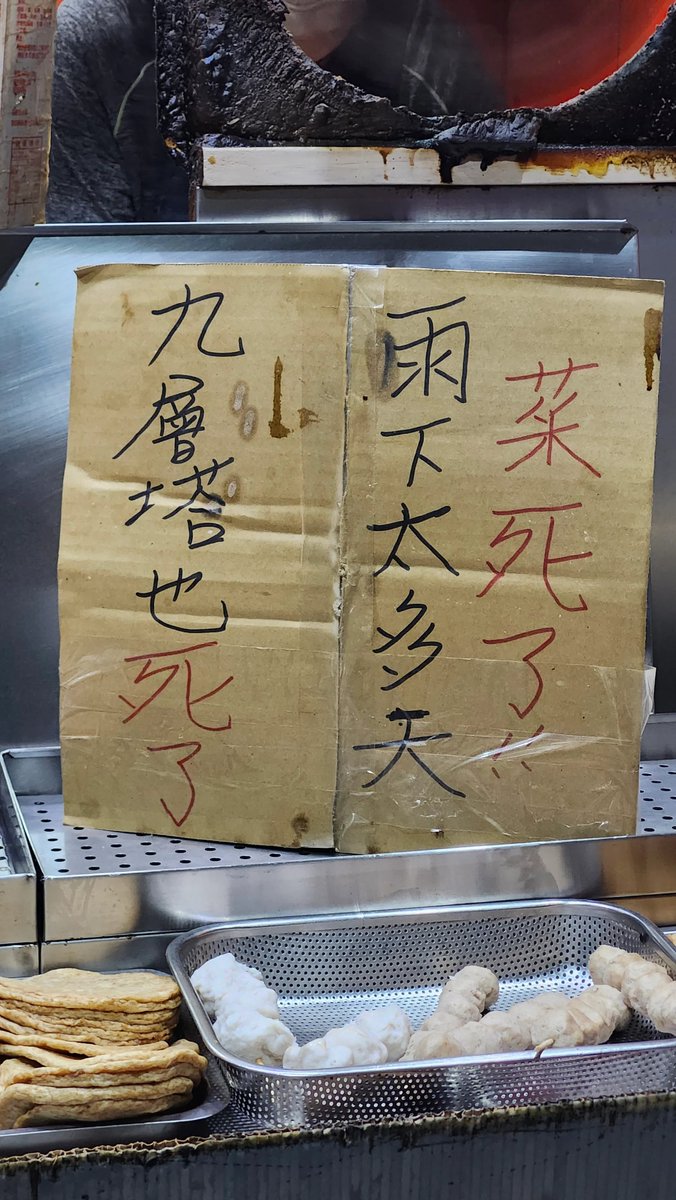 菜死了!!
雨下太多天
九層塔也死了